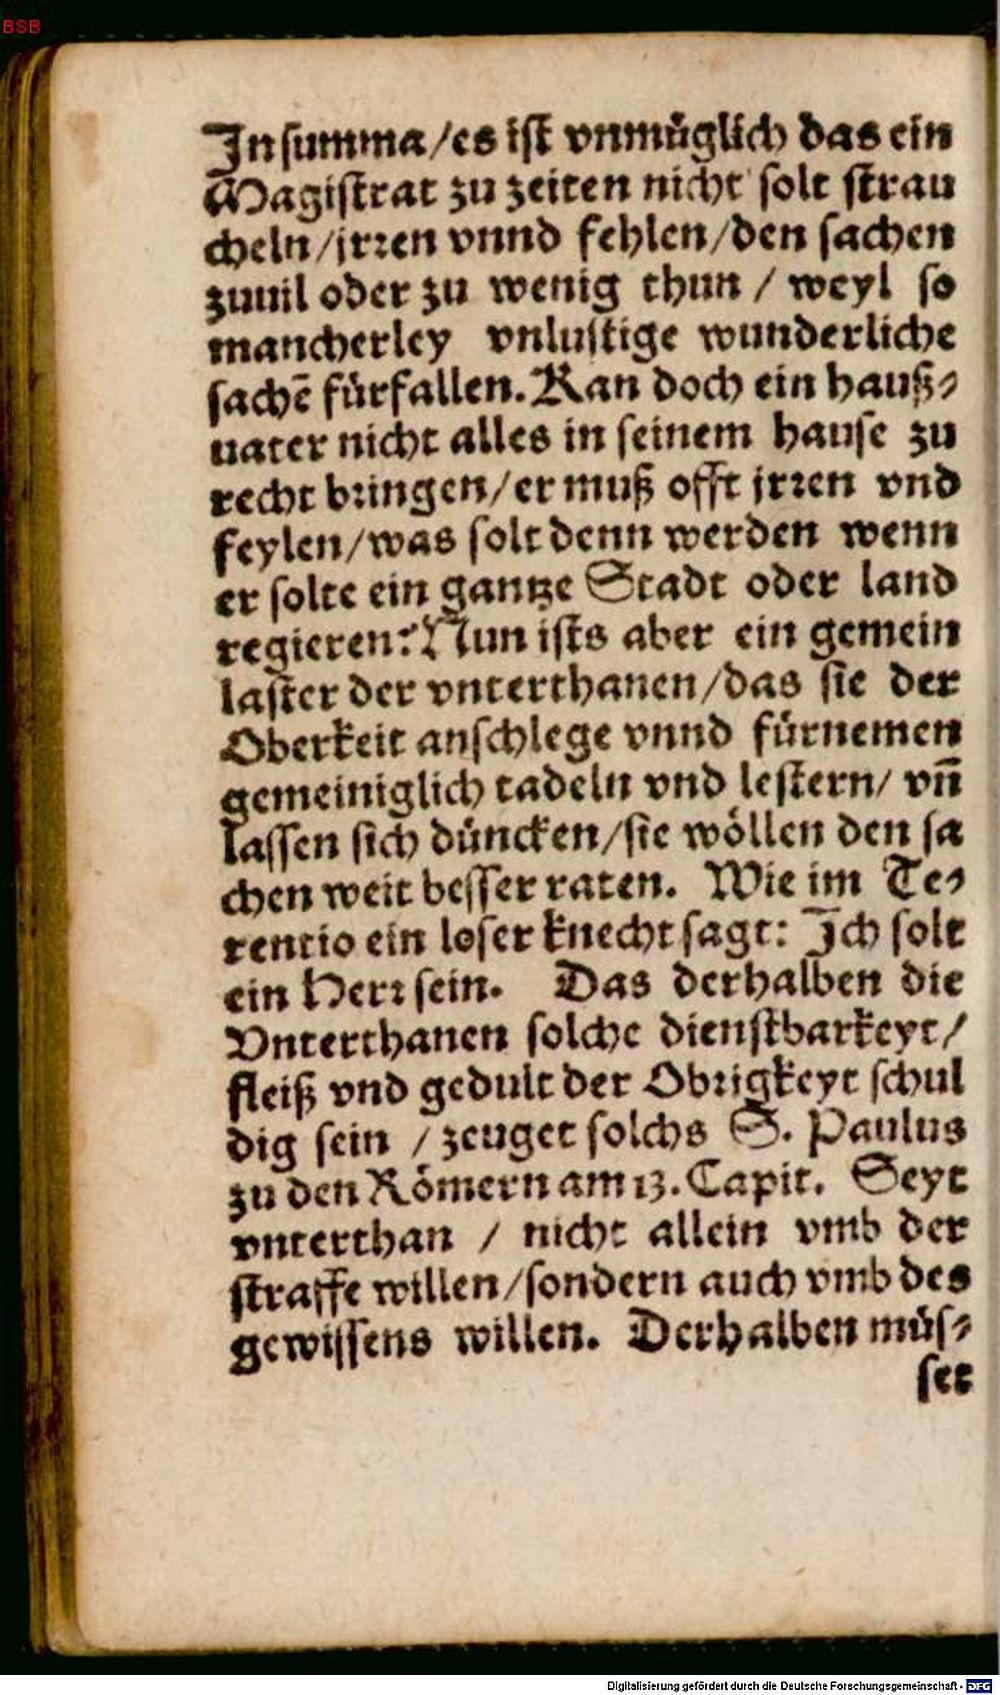 BSB
In summa / es ist vnmüglich das ein
Magistrat zu zeiten nicht solt strau
cheln / jrren vnnd fehlen / den sachen
zuuil oder zu wenig thun / weyl so
mancherley vnlustige wunderliche
sachē fürfallen. Kan doch ein hauß-
uater nicht alles in seinem hause zu
recht bringen / er muß offt jrren vnd
feylen / was solt denn werden wenn
er solte ein gantze Stadt oder land
regieren? Nun ists aber ein gemein
laster der vnterthanen / das sie der
Oberkeit anschlege vnnd fürnemen
gemeiniglich tadeln vnd lestern / vñ
lassen sich düncken / sie wöllen den sa
chen weit besser raten. Wie im Te-
rentio ein loser knecht sagt: Ich solt
ein Herr sein. Das derhalben die
Vnterthanen solche dienstbarkeyt /
fleiß vnd gedult der Obrigkeyt schul
dig sein / zeuget solchs S. Paulus
zu den Römern am 13. Capit. Seyt
vnterthan / nicht allein vmb der
straffe willen / sondern auch vmb des
gewissens willen. Derhalben müs-
set
Digitalisierung gefördert durch die Deutsche Forschungsgemeinschaft - DFG